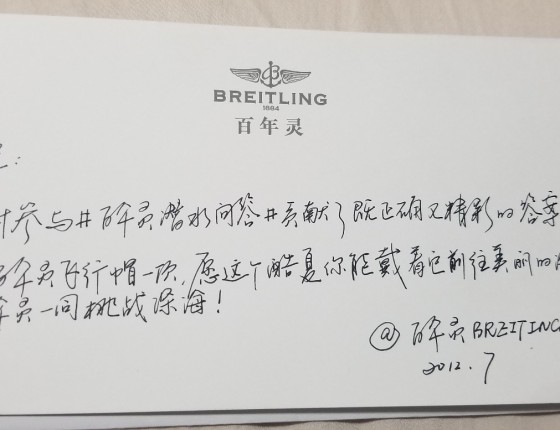 BREITLING
1884
百年灵
参与#百年灵潜水问答#贡献了既正确又精彩的答案
百年灵飞行帽一顶,愿这个酷夏你能戴着它前往美丽的
年灵一同挑战深海!
@百年灵BREITLING
2012.7